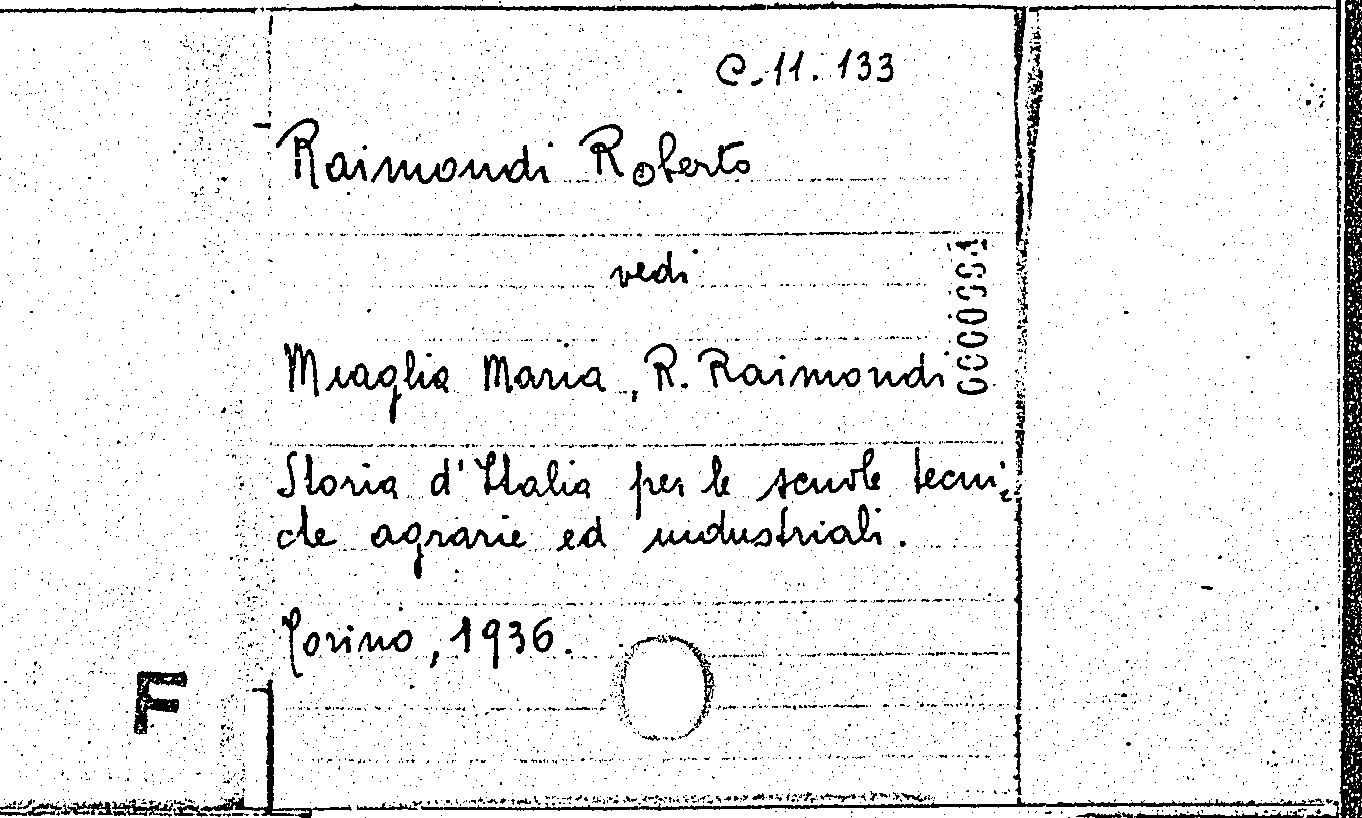 C-11.133
Raimondi Roberto
vedi
Meaglia Maria, R. Raimondi
Storia d'Italia per le scuole tecni-
che agrarie ed industriali.
Torino, 1936.
F